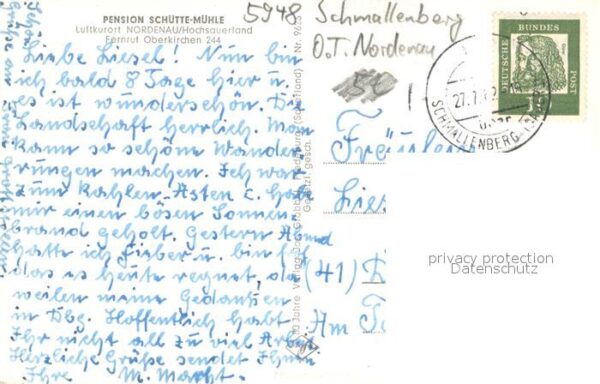 PENSION SCHÜTTE-MÜHLE
Luftkurort NORDENAU/Hochsauerland
Fernruf Oberkirchen 244
5948 Schmallenberg
O.T. Nordenau
50
DEUTSCHE BUNDES POST
27.7.
SCHMALLENBERG
Liebe Liesel! Nun bin
ich bald 8 Tage hier u.
es ist wunderschön. Die
Landschaft herrlich. Man
kann so schöne Wander
rungen machen. Ich war
zum Kahlen-Asten u. habe
mir einen bösen Sonnen-
brand geholt. Gestern Abend
hatte ich Fieber u. bin froh
das es heute regnet, da
weilen meine Gedanken
in Dbg. Hoffentlich habt
Ihr nicht all zu viel Arbeit
Herzliche Grüße sendet Ihnen
Ihre M. Macht.
Grüße an
Nr. 9623
Gesetzl. gesch.
Jahre Verlag Dr.
Fräulein
Lies
(41) D
Am T
privacy protection
Datenschutz